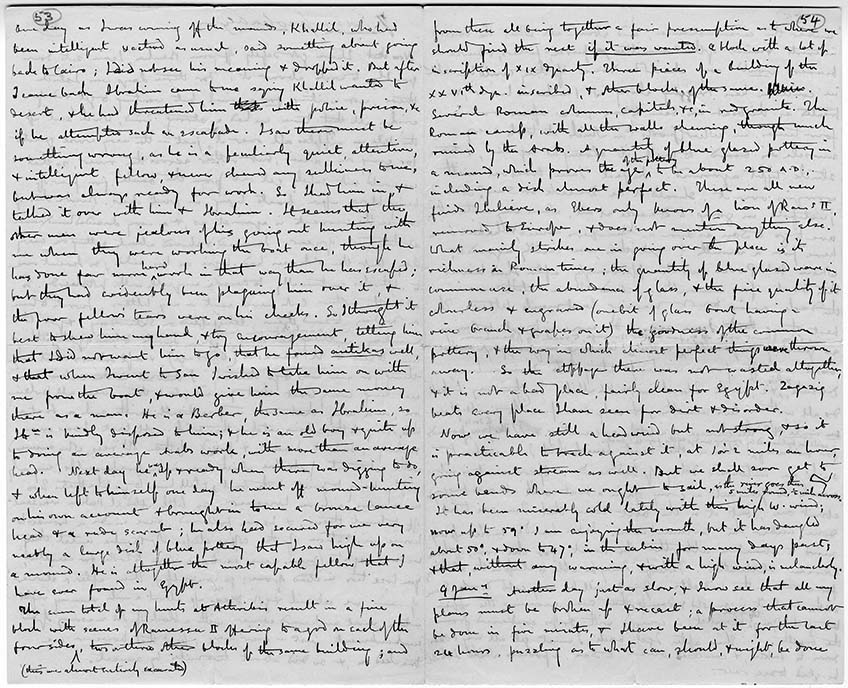 53
One day as I was coming off the mounds, Khallil, who had
been intelligent & acted as usual, said something about going
back to Cairo; I did not see his meaning & dropped it. But after
I came back Ibrahim came to me saying Khallil wanted to
desert, & he had threatened him with police, prison, &c
if he attempted such an escapade. I saw there must be
something wrong, as he is a peculiarly quiet, attentive,
& intelligent fellow, & never shewed any sulkiness to me,
but was always ready for work. So I had him in, &
talked it over with him & Ibrahim. It seems that the
other men were jealous of his going out hunting with
me when they were working the boat once, though he
has done far more hard work in that way than he has escaped;
but they had evidently been plaguing him over it, &
the poor fellow's tears were on his cheeks. So I thought it
best to shew him my hand, & try encouragement, telling him
that I did not want him to go, that he found antekas well,
& that when I went to San I wished to take him on with
me from the boat, & would give him the same money
there as a man. He is a Berber, the same as Ibrahim, so
Ibm is kindly disposed to him; & he is an old boy & quite up
to doing an average arabs work, with more than an average
head. Next day he was up & ready when there was digging to do,
& when left to himself one day he went off mound-hunting
on his own account & brought in to me a bronze lance
head & a rudy scarab; he also had secured for me very
neatly a large dish of blue pottery that I saw high up on
a mound. He is altogether the most capable fellow that I
have ever found in Egypt.
The sum total of my hunts at Athribis result in a fine
block with scenes of Ramessu II offering to a god on each of the
four sides, two or three other blocks of the same building; and
(this one almost entirely excavated)
54
from these all being together a fair presumption as to where we
should find the rest if it was wanted. A block with a bit of
inscription of XIX dynasty. Three pieces of a building of the
XXVIth dyn. inscribed, & other blocks of the same.
Several Roman columns, capitals, &c, in red granite. The
Roman camp, with all the walls shewing, though much
ruined by the Arabs. A quantity of blue glazed pottery in
a mound, which proves the age of the pottery to be about 250 A.D.,
including a dish almost perfect. These are all new
finds I believe, as Ebers only knows of lion of Rams II
removed to Europe, & does not mention anything else.
What mainly strikes me in going over the place is its
richness in Roman times; the quantity of blue glazed ware in
common use, the abundance of glass, & the fine quality of it
colourless & engraved (one bit of glass bowl having a
vine branch & grapes on it) the goodness of the common
pottery, & the way in which almost perfect things were thrown
away. So the stoppage there was not wasted altogether,
& it is not a bad place, fairly clean for Egypt. Zagazig
beats every place I have seen for dirt & disorder.
Now we have still a headwind but not strong, & so it
is practicable to track against it, at 1 or 2 miles an hour,
going against stream as well. But we shall soon get to
some bends where we ought to sail, as the river goes thus
5 miles round, to 1 mile across.
It has been miserably cold lately with this high W. wind;
now up to 59° I am enjoying the warmth, but it has dangled
about 50°, & down to 47°, in the cabin, for many days past;
& that without any warming, & with a high wind, is melancholy.
9 Jany Another day just as slow, & I now see that all my
plans must be broken up & recast; a process that cannot
be done in five minutes, & I have been at it for the last
24 hours, puzzling as to what can, should, & might, be done